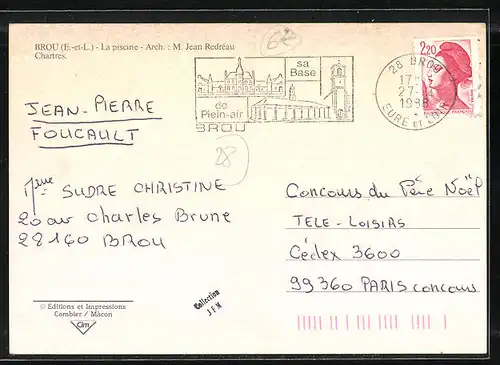 BROU (E.-et-L.) - La piscine - Arch. : M. Jean Redréau
Chartres.
62
sa
Base
de
Plein-air
BROU
28 BROU
17
27-
1988
EURE ET LOIR
2,20
JEAN-PIERRE
FOUCAULT
28
Mme SUDRE CHRISTINE
20 av Charles Brune
28160 BROU
Concours du Père Noël
TELE-LOISIRS
Cédex 3600
99360 PARIS concours
© Editions et Impressions
Combier / Mâcon
Cim
Collection
JFN